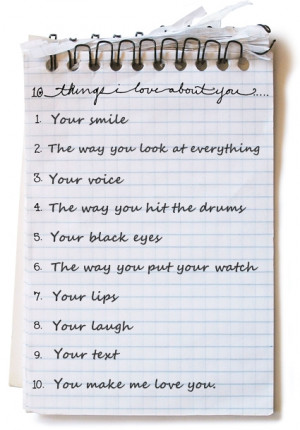 10 things i love about you.....
1. Your smile
2. The way you look at everything
3. Your voice
4. The way you hit the drums
5. Your black eyes
6. The way you put your watch
7. Your lips
8. Your laugh
9. Your text
10. You make me love you.